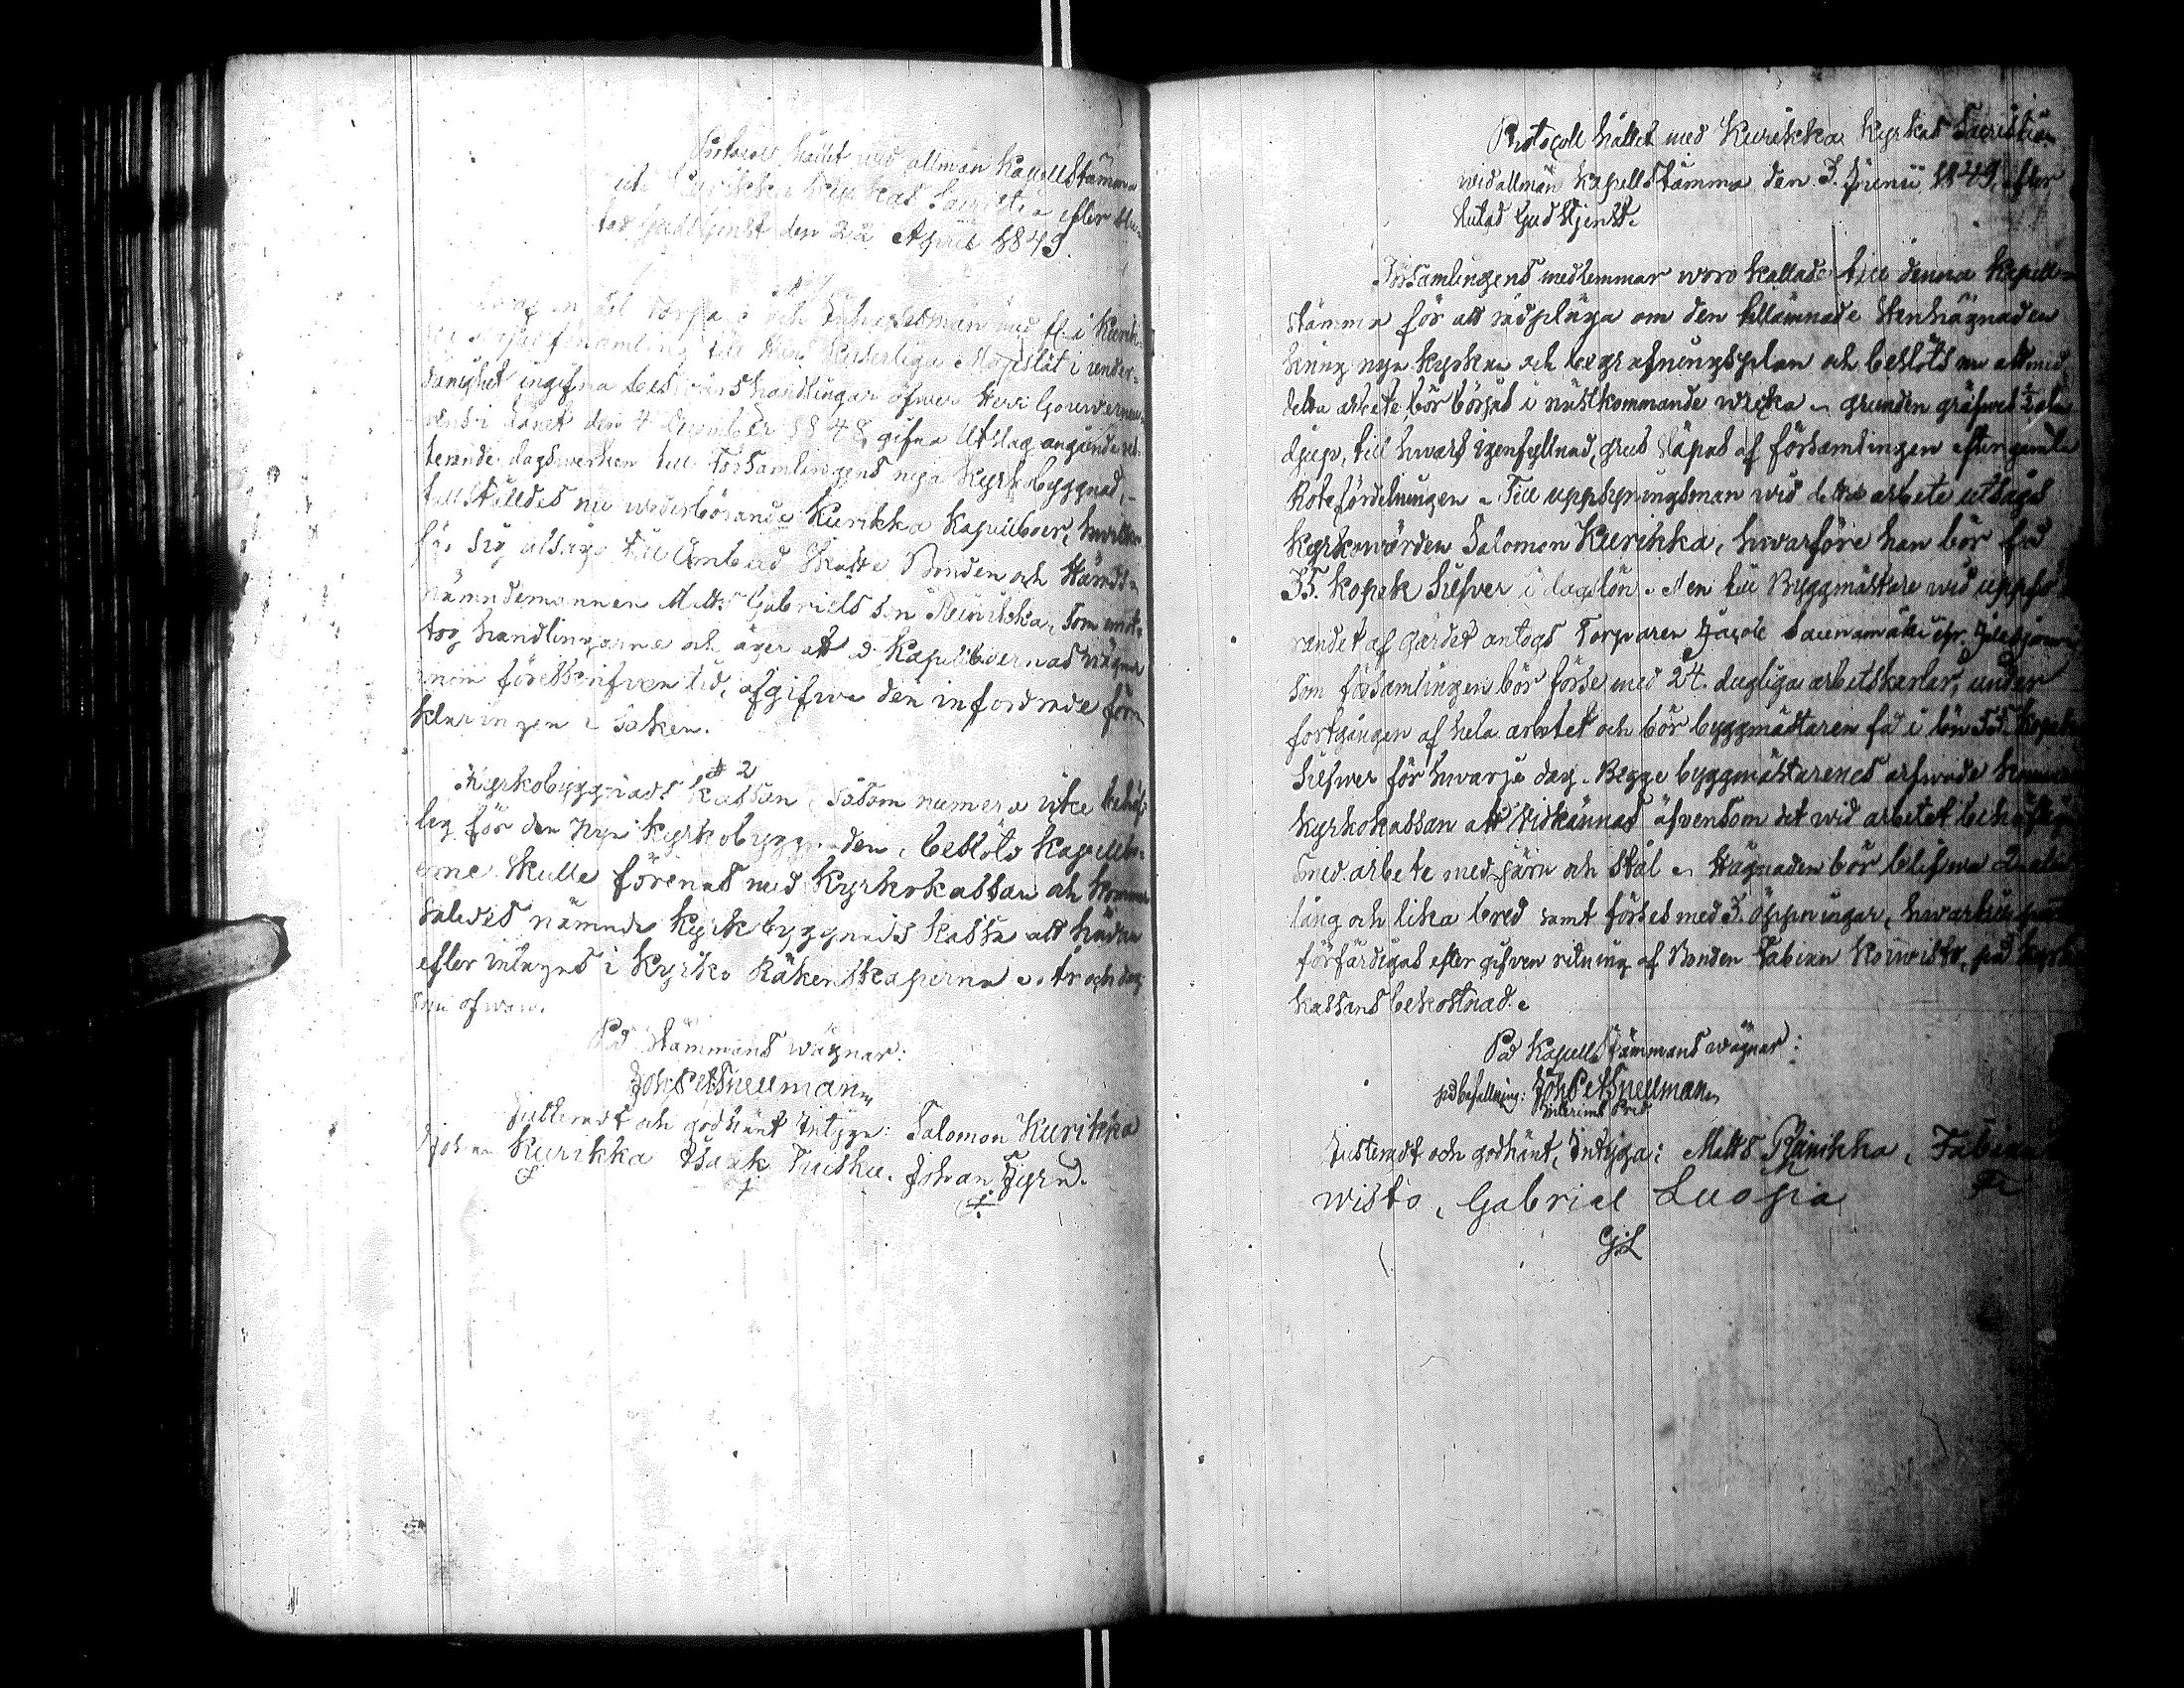 Protocoll hållet wid allmän Kapellstämma
uti Kurikka Kyrkas Sacristia efter slu-
tad Gudstjenst den 22 April 1849.
Torpare och Inhysesman med fl. i Kurik-
ka Kapellförsamling till Hans Kejserliga Majestät i under-
dånighet ingifna besvärshandlingar öfwer Herr Gouverneu-
rens i länet den 4 December 1848 gifna Utslag angående res-
terande dagswerken till Församlingens nya Kyrkobyggnad,-
tillställdes nu wederbörande Kurikka Kapellboer, hwilka
för sig utsågo till Ombud Skatte Bonden och Härads-
nämndemannen Matts Gabrielsson Reinikka, som emot-
tog handlingarne och äger att å Kapellboernas wägnar
inom föreskrifven tid, afgifwa den infordrade för-
klaringen i saken.
§ 2
Kyrkobyggnads Kassan, såsom numera icke behöf-
lig för den nya Kyrkobyggnaden, beslöto Kapellbo-
erne skulle förenas med Kyrkokassan och kommer
således nämnde Kyrkbyggnads kassa att hädan
efter intagas i Kyrko Räkenskaperna. År och dag
som ofwan.
På Stämmans wägnar:
Joh Pet Snellman
Justeradt och godkänt Intyga: Salomon Kurikka
Johan Kurikka Isaak Tuisku. Johan Jyrä.
Protocoll hållet med Kurikka Kyrkas Sacristia
wid allmän Kapellstämma den 3. Junii 1849, efter
slutad Gudstjenst.
Församlingens medlemmar woro kallade till denna Kapell-
stämma för att rådpläga om den tillämnade Stenhägnaden
kring nya kyrkan och begrafningsplan och beslöts nu att med
detta arbete bör börjas i nästkommande wecka - grunden gräfwes ½ aln
djup, till hwars igenfyllnad, grus släpas af församlingen efter gamla
Rotefördelningen - Till uppsyningsman wid detta arbete utsågs
Kyrkowärden Salomon Kurikka, hwarföre han bör få
35. kopek Silfver i dagslön. Men till Byggmästare wid uppfö-
randet af gärdet antogs Torparen Jacob
som församlingen bör förse med 24. dugliga arbetskarlar, under
fortgången af hela arbetet och bör byggmästaren få i lön 55. kopek
Silfwer för hwarje dag. Begge byggmästarenes arfwode kommer
kyrkokassan att widkännas äfvensom det wid arbetet behöfliga
smedarbete med järn och stål - Hägnaden bör blifwa
lång och lika bred samt förses med 3. öppningar, hwartill
förfärdigas efter gifven ritning af Bonden Fabian Koiwisto, på kyrko
kassans bekostnad.
På Kapellstämmans wägnar:
på befallning: Joh Pet Snellman
Interims Pred
Justeradt och godkänt, Intyga: Matts Reinikka, Fabian
wisto, Gabriel Luopa
G L